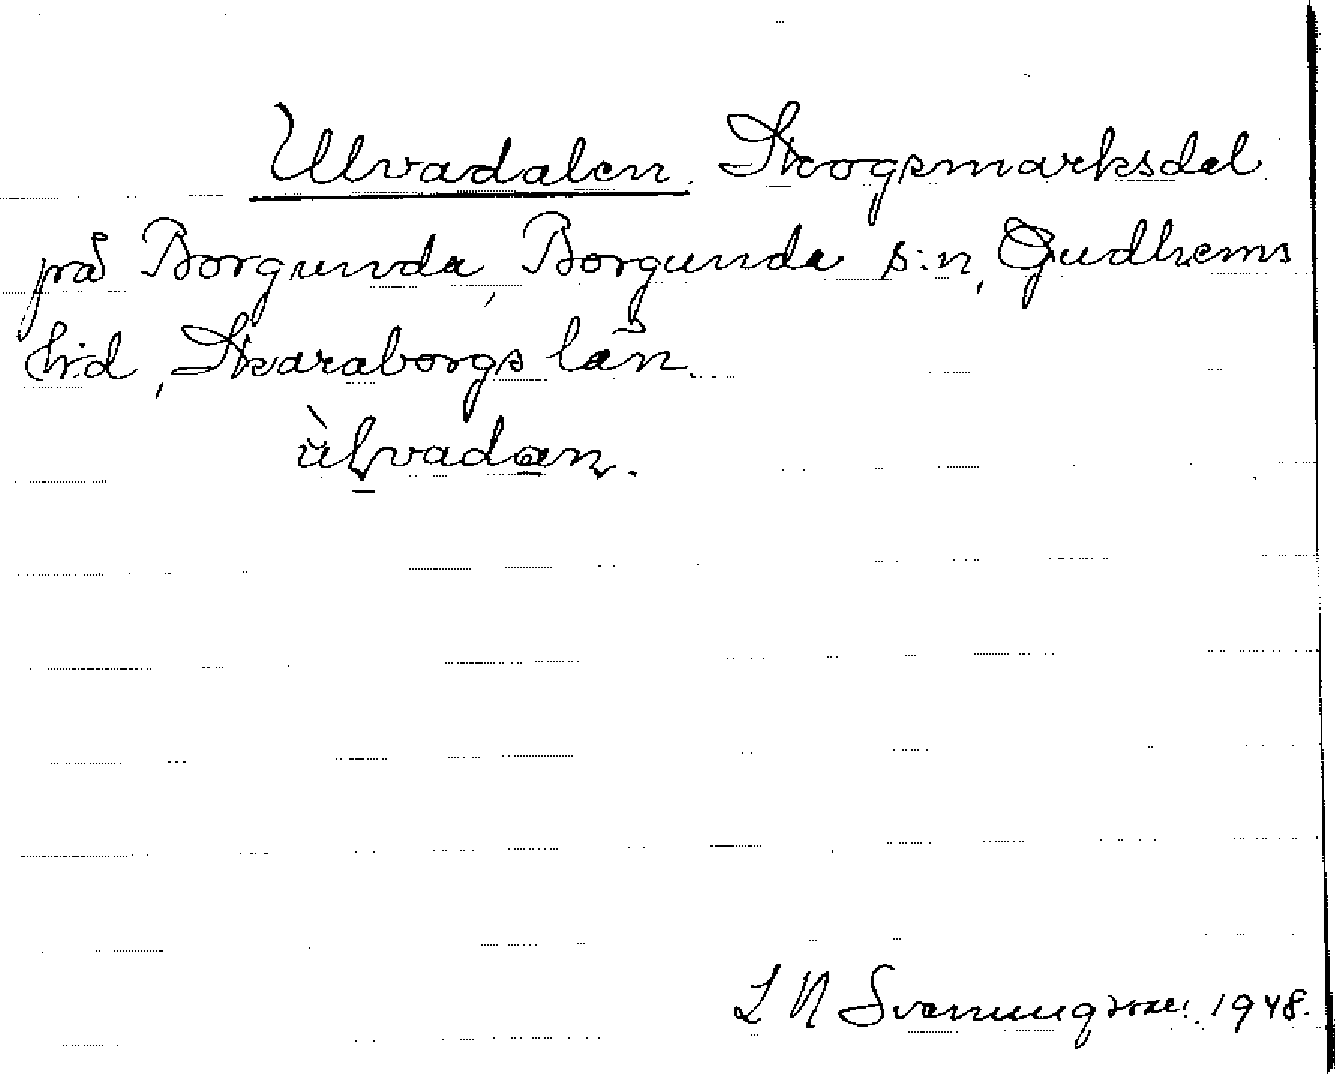 Ulvadalen. Skogsmarksdel
på Borgunda, Borgunda s:n, Gudhems
h:d, Skaraborgs län.
ùlvadan.
L N Svenungsson. 1948.